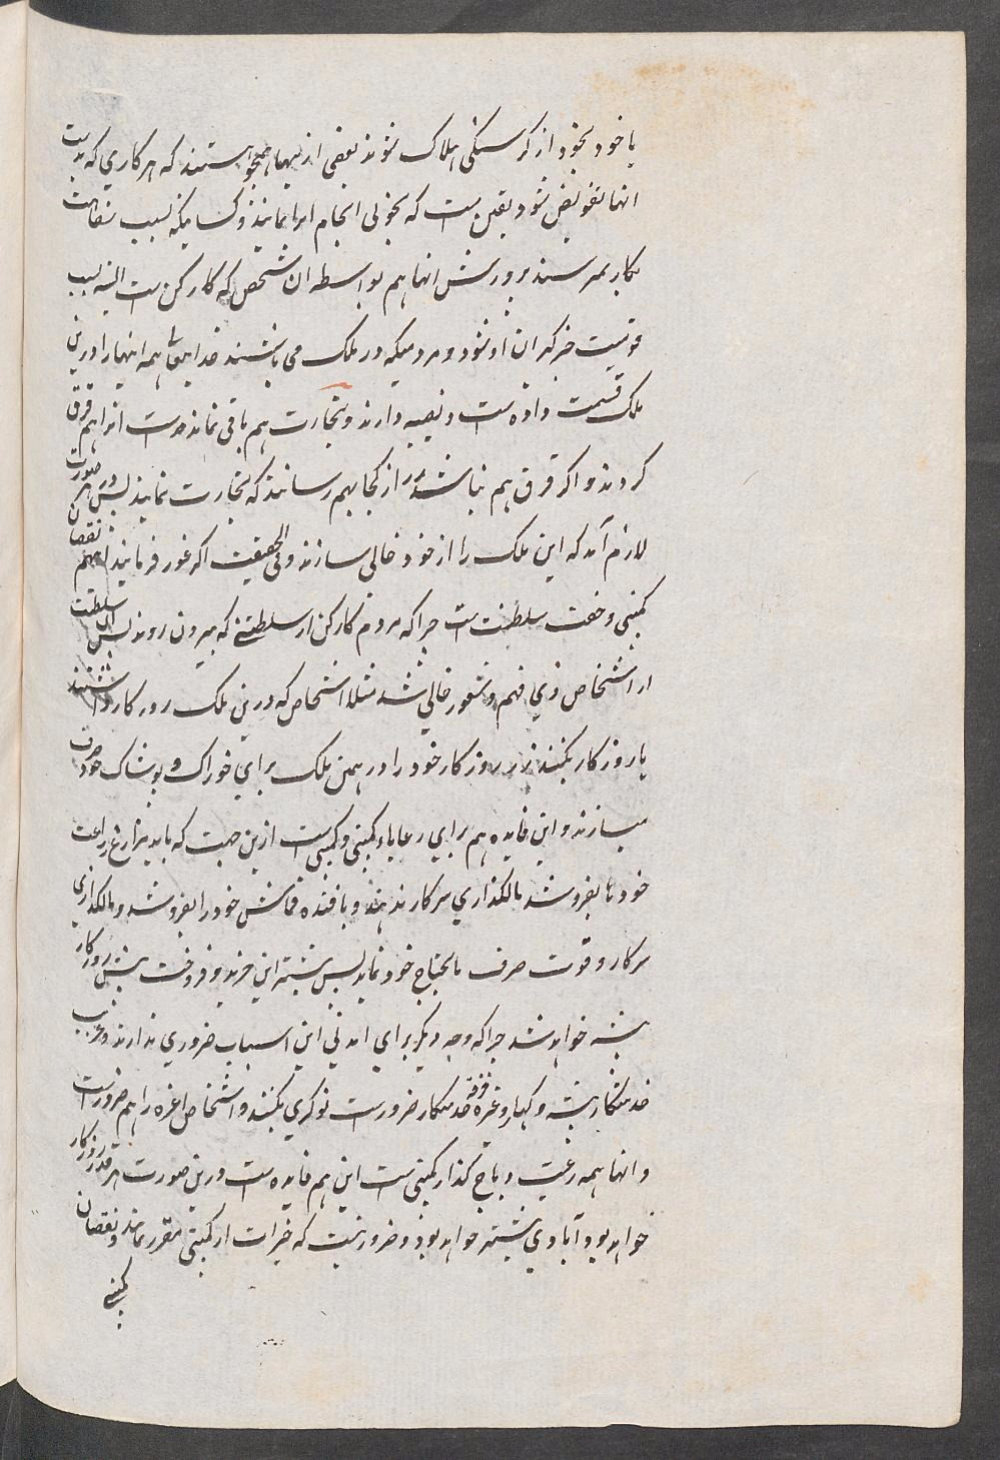 یا خود بخود از کرسنکی هلاک شوند بعضی از اینها همچو هستند که هر کاری که بدست
انها تفویض شود یقین ست که بخوبی انجام انرا نمایند و کسانیکه بسبب
بکار نمیرسند پرورش انها هم بواسطه ان شخص که کارکن ست البته بسبب
قومیت خبرکیران او شود و مردمیکه در ملک می باشند خدایتعالی همه اینها را درین
ملک قسمت داده ست و نصیبه دارند و تجارت هم باقی نمانده ست انرا هم قرق
کردند و اکر قرق هم نباشد زر از کجا بهم رسانند که تجارت نمایند پس درین صورت
لازم آمد که این ملک را از خود خالی سازند و فی الحقیقت اکر غور فرمایند اینهم نقصان
کمپنی و خفت سلطنت ست چرا که مردم کارکن از سلطنتی که بیرون روند پس ان سلطنت
از اشخاص ذی فهم و شعور خالی شد مثلا اشخاص که درین ملک روزکار داشتند
یا روزکار بکنند زر روزکار خود را در همین ملک برای خوراک و پوشاک خود صرف
میسازند و این فایده هم برای رعایاء کمپنی و کمپنی ست ازین جهت که باید مزارع زراعت
خود تا بفروشد مالکذاری سرکار ندهند و بافنده قماش خود را بفروشد و مالکذاری
سرکار و قوت صرف مایحتاج خود نماید پس بیشتر این خرید و فروخت بیش روزکار
بیشه خواهد شد چرا که وجه دیکر برای امدنی این اسباب ضروری ندارند و غریب
خدمتکار پیشه و کهار و غیره فرقه خدمتکار ضرورست نوکری بکنند و اشخاص اعزه را هم ضرورست
و انها همه رعیت و باج کذار کمپنی ست این هم فایده ست درین صورت هر قدر روزکار
خواهد بود آبادی بیشتر خواهد بود و ضرور نیست که خیرات از کمپنی مقرر نمایند و نقصان
کمپنی